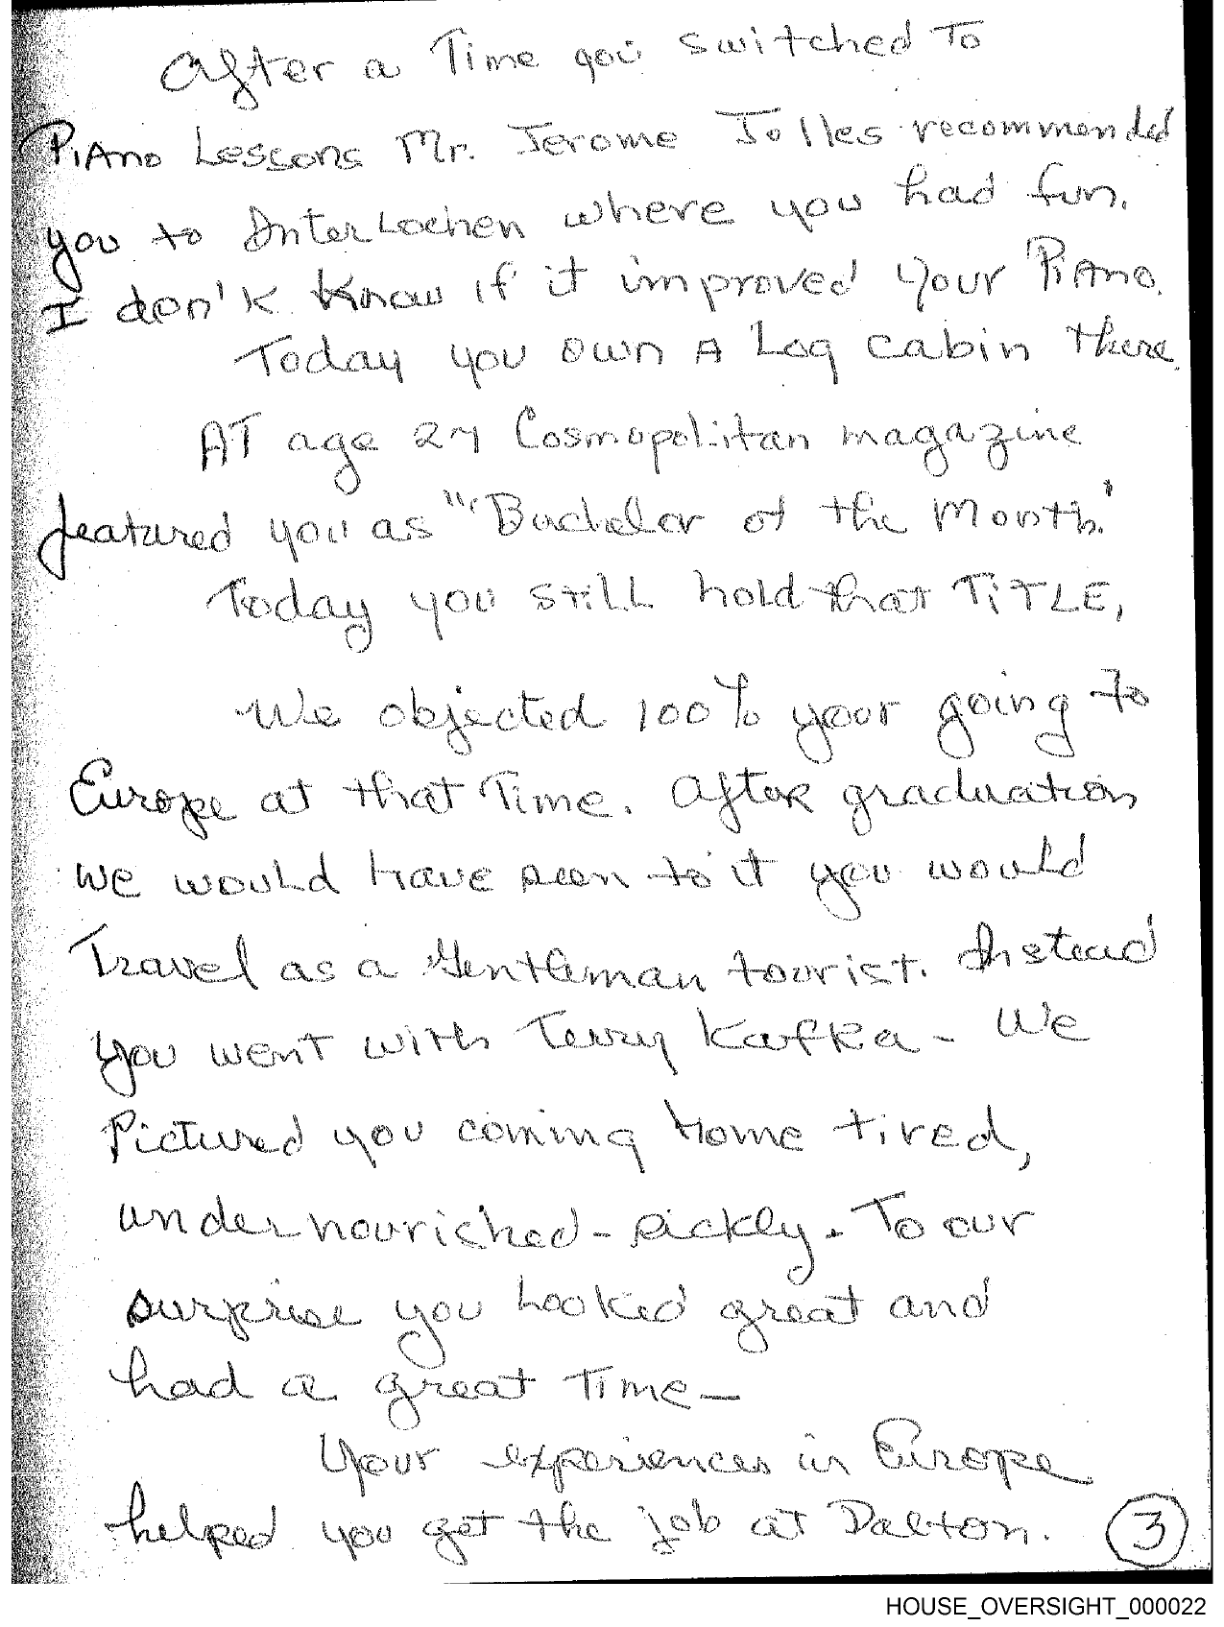 After a Time you switched To
PiAno Lessons Mr. Jerome Jolles recommended
you to InterLochen where you had fun.
I don't Know if it improved your PiAno.
Today you own A Log cabin there.
AT age 27 Cosmopolitan magazine
featured you as "Bachelor of the Month."
Today you still hold that TiTLE,
We objected 100% your going to
Europe at that Time. After graduation
we would have seen to it you would
Travel as a Gentleman tourist. Instead
you went with Terry Kafka - We
Pictured you coming home tired,
undernourished - sickly. To our
surprise you looked great and
had a great Time -
Your experiences in Europe
helped you get the job at Dalton.
3
HOUSE_OVERSIGHT_000022